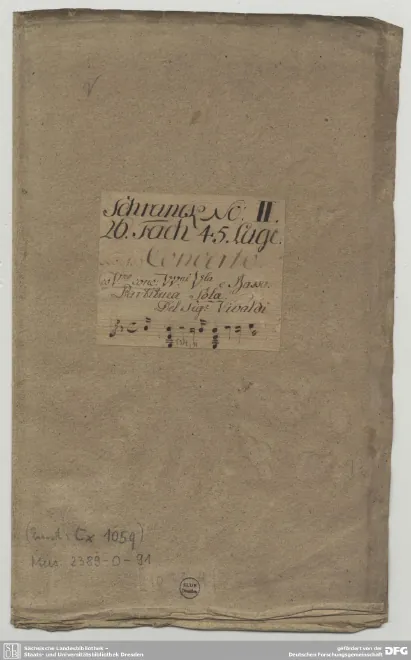 Schranck No: II.
26. Fach 45. Lage.
Concerto
Vno conc: VVni Vla e Basso.
Partitura Sola
Del Sigr Vivaldi
Cx 1059)
Mus. 2389-O-91
SLUB
Sächsische Landesbibliothek –
Staats- und Universitätsbibliothek Dresden
gefördert von der
Deutschen Forschungsgemeinschaft DFG